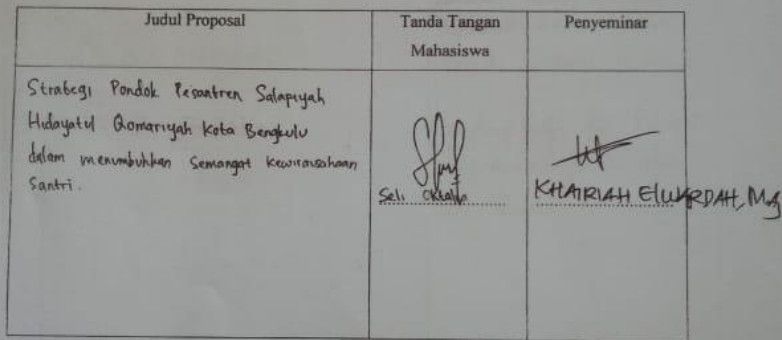 Judul Proposal
Tanda Tangan
Mahasiswa
Penyeminar
Strategi Pondok Pesantren Salapiyah
Hidayatul Qomariyah Kota Bengkulu
dalam menumbuhkan Semangat Kewirausahaan
Santri.
Seli Oktalia
KHAIRIAH ElWARDAH, M.Ag